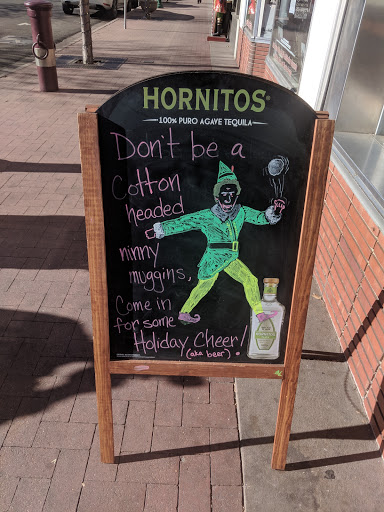 HORNITOS®
100% PURO AGAVE TEQUILA
Don't be a
Cotton
headed
ninny
muggins,
Come in
for some
Holiday Cheer!
(aka beer)